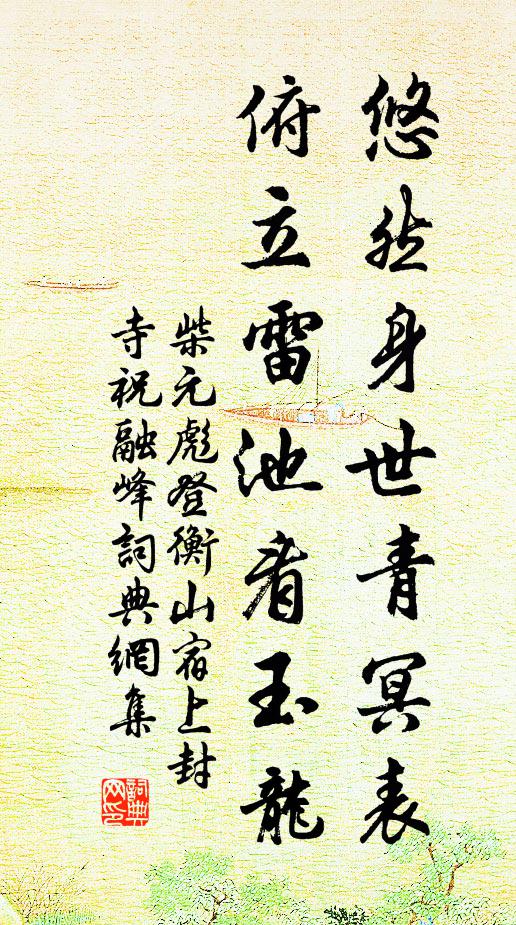 悠然身世青冥表
俯立雷池看玉龍
柴元彪登衡山宿上封
寺祝融峰詞典網集
詞典
网印